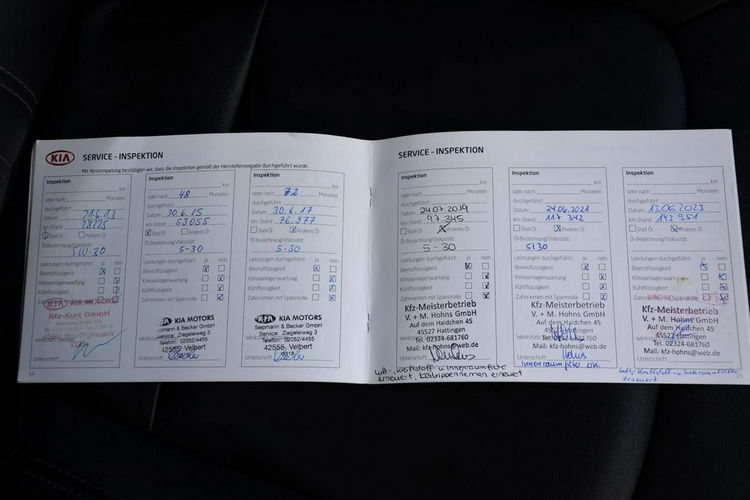 KIA
SERVICE - INSPEKTION
Mit Abstempelung bestätigen wir, dass die Inspektion gemäß der Herstellervorgabe durchgeführt wurde.
Inspektion
km
oder nach Monaten
durchgeführt
Datum 21.6.13
km-Stand
Shell Öl Anderes Öl
Öl-Bezeichnung/Viskosität
5W-30
Leistungen durchgeführt: ja nein
Bremsflüssigkeit
Klimaanlagenwartung
Kühlflüssigkeit
KIA MOTORS
Kfz-Kurt GmbH
Unterschrift
Inspektion
km
oder nach 48 Monaten
durchgeführt
Datum 30.6.15
km-Stand 53055
Shell Öl Anderes Öl
Öl-Bezeichnung/Viskosität
5-30
Leistungen durchgeführt: ja nein
Bremsflüssigkeit
Klimaanlagenwartung
Kühlflüssigkeit
Zahnriemen mit Spannrolle
KIA MOTORS
Siepmann & Becker GmbH
Service: Ziegeleiweg 3
Telefon: 02052/4455
42555 Velbert
Unterschrift
Inspektion
km
oder nach 72 Monaten
durchgeführt
Datum 30.6.17
km-Stand 76.977
Shell Öl Anderes Öl
Öl-Bezeichnung/Viskosität
5-30
Leistungen durchgeführt: ja nein
Bremsflüssigkeit
Klimaanlagenwartung
Kühlflüssigkeit
Zahnriemen mit Spannrolle
KIA MOTORS
Siepmann & Becker GmbH
Service: Ziegeleiweg 3
Telefon: 02052/4455
42555 Velbert
Unterschrift
SERVICE - INSPEKTION
Inspektion
km
oder nach Monaten
durchgeführt
Datum 24.07.2019
km-Stand 97.345
Shell Öl Anderes Öl
Öl-Bezeichnung/Viskosität
5-30
Leistungen durchgeführt: ja nein
Bremsflüssigkeit
Klimaanlagenwartung
Kühlflüssigkeit
Zahnriemen mit Spannrolle
Kfz-Meisterbetrieb
V. + M. Hohns GmbH
Auf dem Haidchen 45
45527 Hattingen
Tel. 02324-681760
Mail: kfz-hohns@web.de
Unterschrift
Luft-, Kraftstoff- u Innenraumfilter
erneuert, Keilrippenriemen erneuert
Inspektion
km
oder nach Monaten
durchgeführt
Datum 24.06.2021
km-Stand 117 342
Shell Öl Anderes Öl
Öl-Bezeichnung/Viskosität
5/30
Leistungen durchgeführt: ja nein
Bremsflüssigkeit
Klimaanlagenwartung
Kühlflüssigkeit
Zahnriemen mit Spannrolle
Kfz-Meisterbetrieb
V. + M. Hohns GmbH
Auf dem Haidchen 45
45527 Hattingen
Tel. 02324-681760
Mail: kfz-hohns@web.de
Unterschrift
Innenraumfilter ern.
Inspektion
km
oder nach Monaten
durchgeführt
Datum 13.06.2023
km-Stand 143 951
Shell Öl Anderes Öl
Öl-Bezeichnung/Viskosität
Leistungen durchgeführt: ja nein
Bremsflüssigkeit
Klimaanlagenwartung
Kühlflüssigkeit
Zahnriemen mit Spannrolle
Kfz-Meisterbetrieb
V. + M. Hohns GmbH
Auf dem Haidchen 45
45527 Hattingen
Tel. 02324-681760
Mail: kfz-hohns@web.de
Unterschrift
Luft-, Kraftstoff- u. Innenraumfilter
erneuert